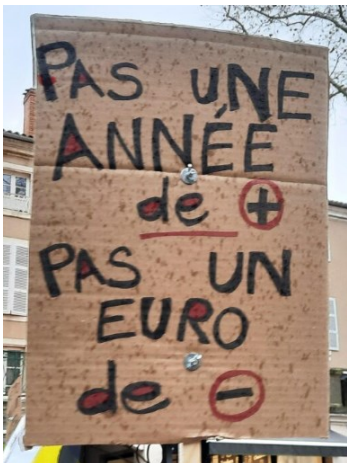 PAS UNE
ANNÉÉ
de +
PAS UN
EURO
de -